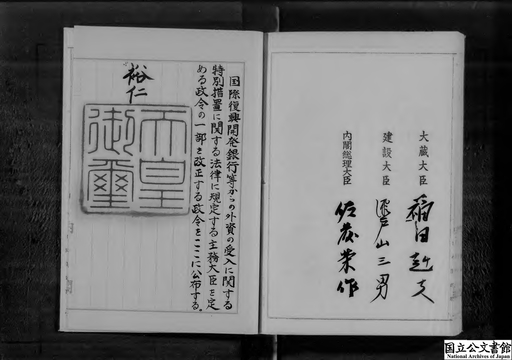 国際復興開発銀行等からの外資の受入に関する
特別措置に関する法律に規定する主務大臣を定
める政令の一部を改正する政令をここに公布する。
裕仁
天皇
御璽
大蔵大臣
建設大臣 瀬戸山三男
内閣総理大臣 佐藤栄作
国立公文書館
National Archives of Japan